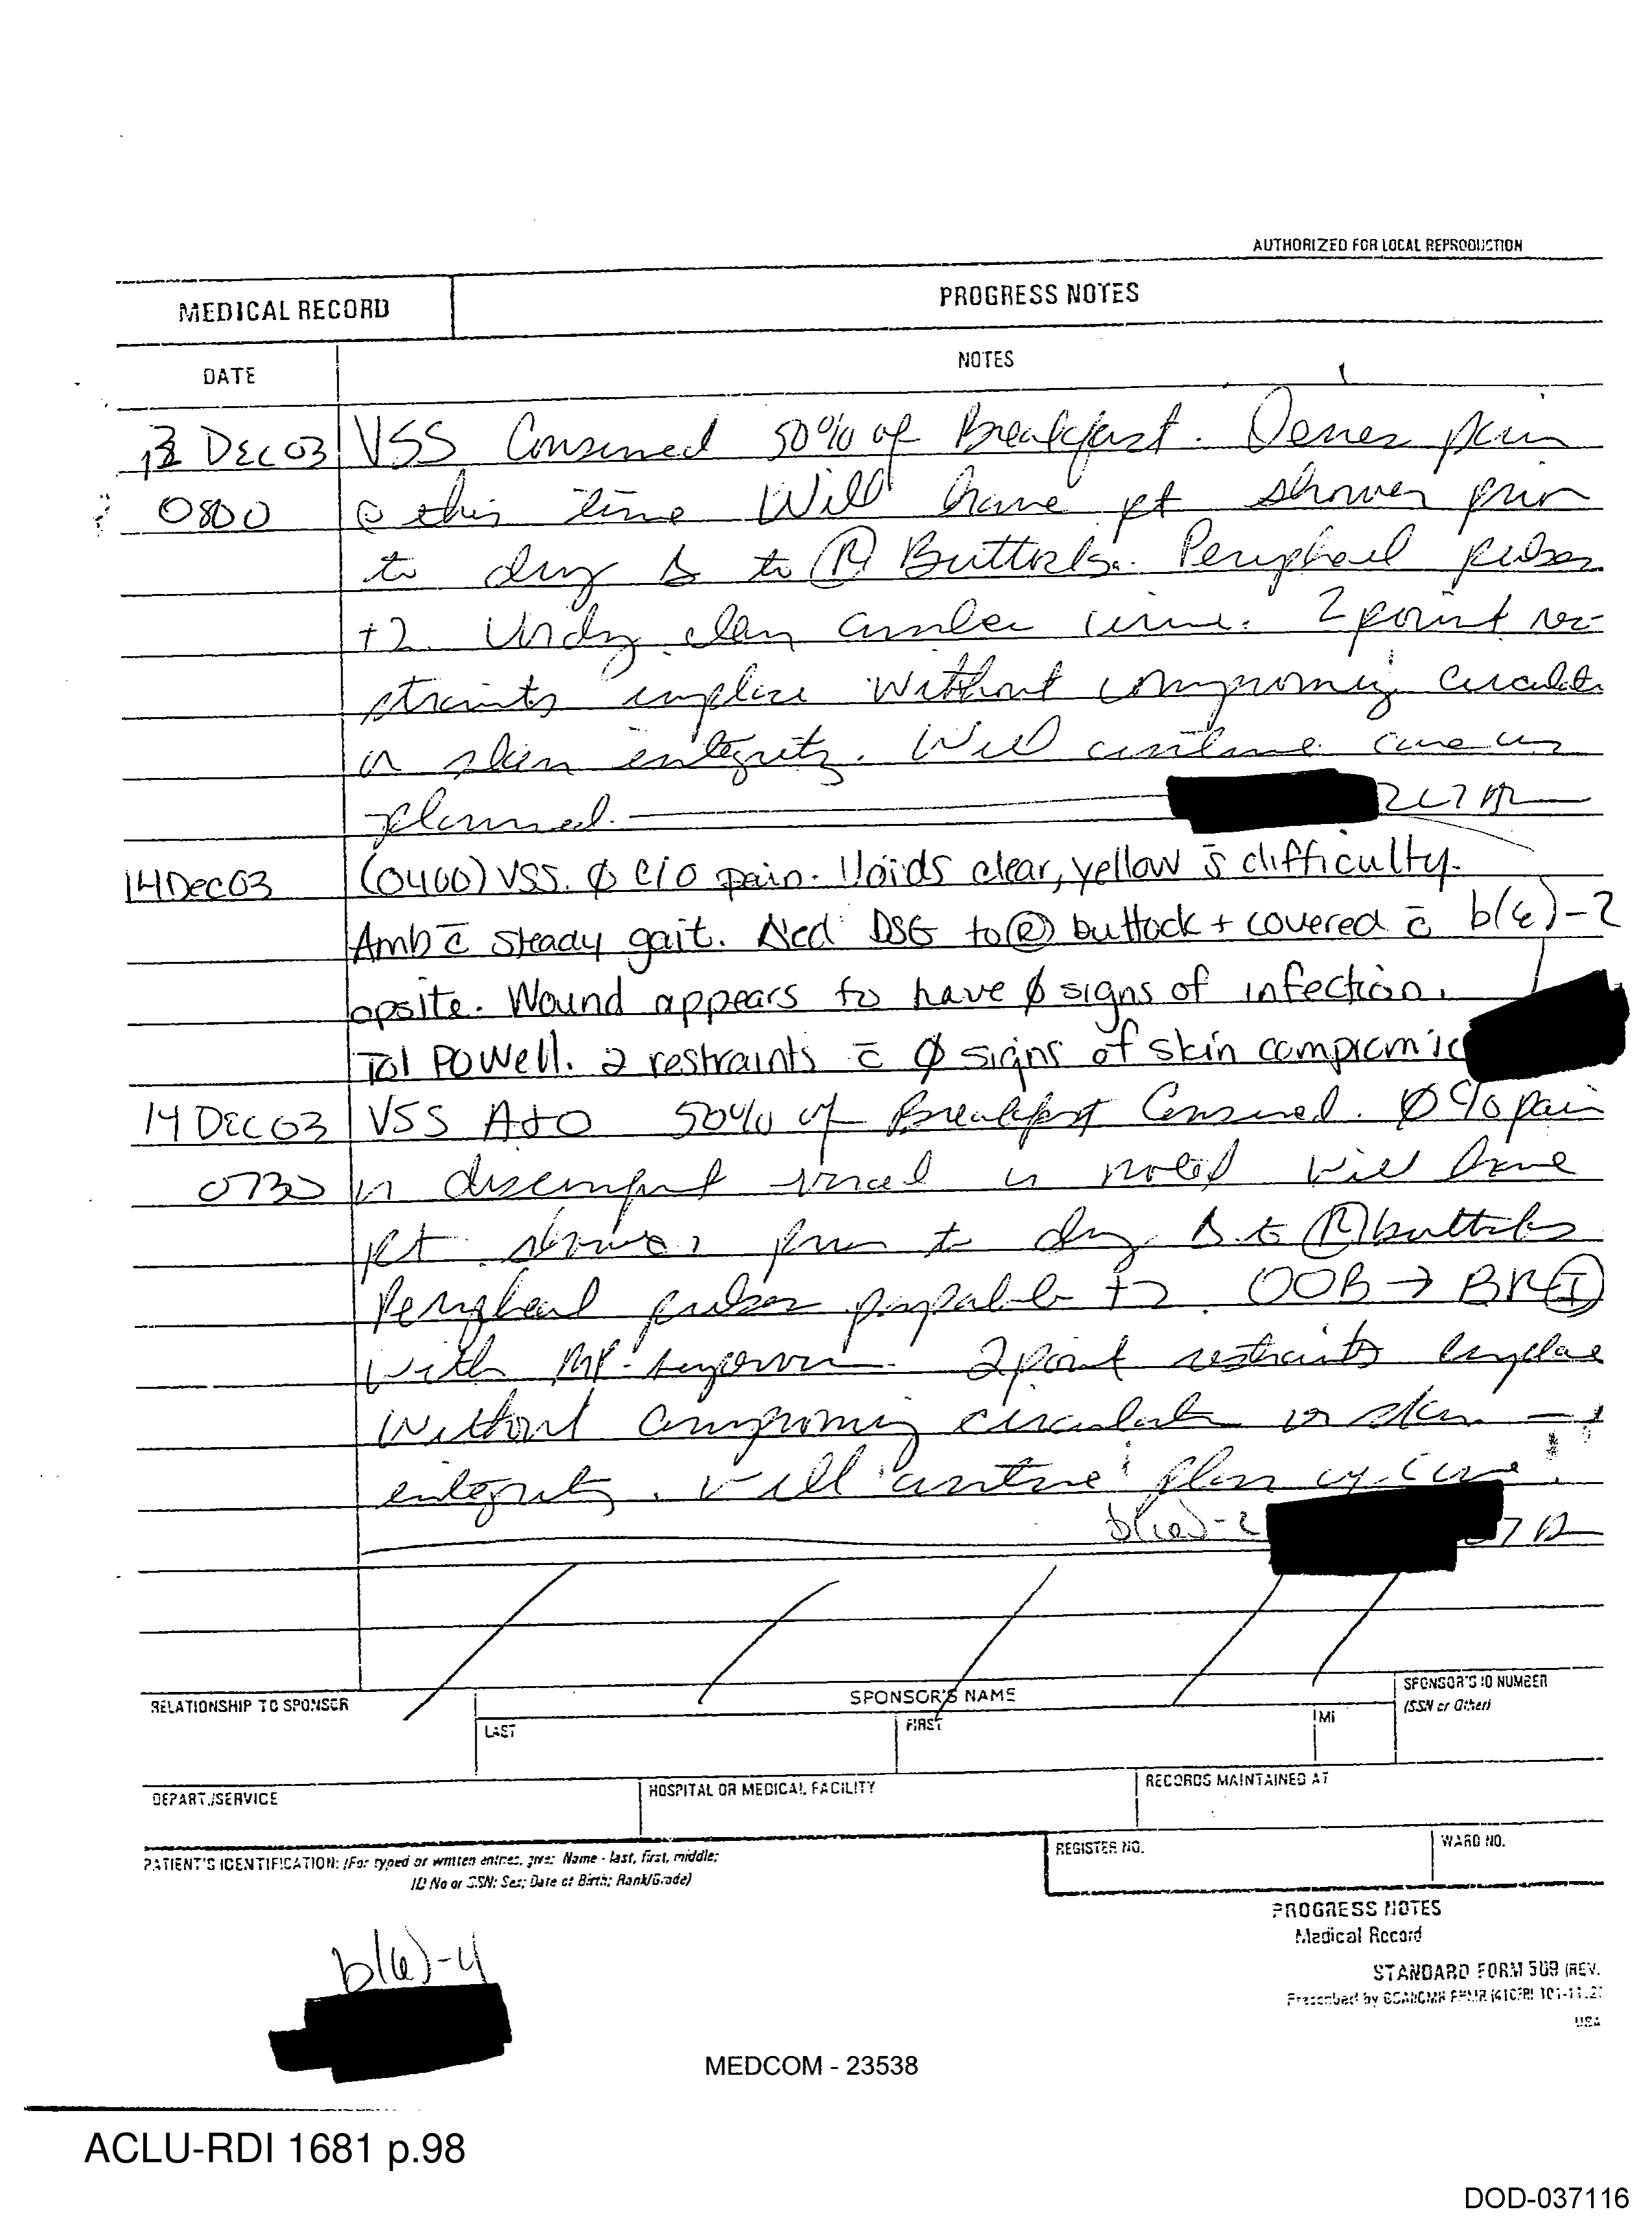 AUTHORIZED FOR LOCAL REPRODUCTION
MEDICAL RECORD
PROGRESS NOTES
DATE
NOTES
13 DEC 03 VSS Consumed 50% of Breakfast. Denies pain
0800 @ this time Will have pt shower prior
to dsg Δ to Ⓡ Buttocks. Peripheal pulses
+2. Voidg clear amber urine. 2 point re-
straints inplace without compromisg circulat
or skin integrity. Will continue care as
planned.
14 Dec 03 (0400) VSS. ∅ c/o pain. Voids clear, yellow s̄ difficulty.
Amb c̄ steady gait. Δed DSG to Ⓡ buttock + covered c̄ b(6)-2
opsite. Wound appears to have ∅ signs of infection.
Tol PO well. 2 restraints c̄ ∅ signs of skin compromi
14 DEC 03 VSS A+O 50% of Breakfast Consumed. ∅ c/o pain
0730 or discomfort voiced or noted Will have
pt shower prior to dsg Δ to Ⓡ buttocks
Peripheal pulses palpable +2. OOB → BR Ⓘ
with MP 2 point restraints inplace
Without compromisg circulat or skin
integrity. Will continue plan of care.
b(6)-2
RELATIONSHIP TO SPONSER
SPONSOR'S NAME
SPONSOR'S ID NUMBER
(SSN or Other)
LAST
FIRST
MI
DEPART./SERVICE
HOSPITAL OR MEDICAL FACILITY
RECORDS MAINTAINED AT
PATIENT'S IDENTIFICATION: (For typed or written entries, give: Name - last, first, middle;
ID No or SSN; Sex; Date of Birth; Rank/Grade)
REGISTER NO.
WARD NO.
PROGRESS NOTES
Medical Record
STANDARD FORM 509 (REV.
Prescribed by GSA/ICMR FPMR (41CFR) 101-11.2
USA
b(6)-4
MEDCOM - 23538
ACLU-RDI 1681 p.98
DOD-037116